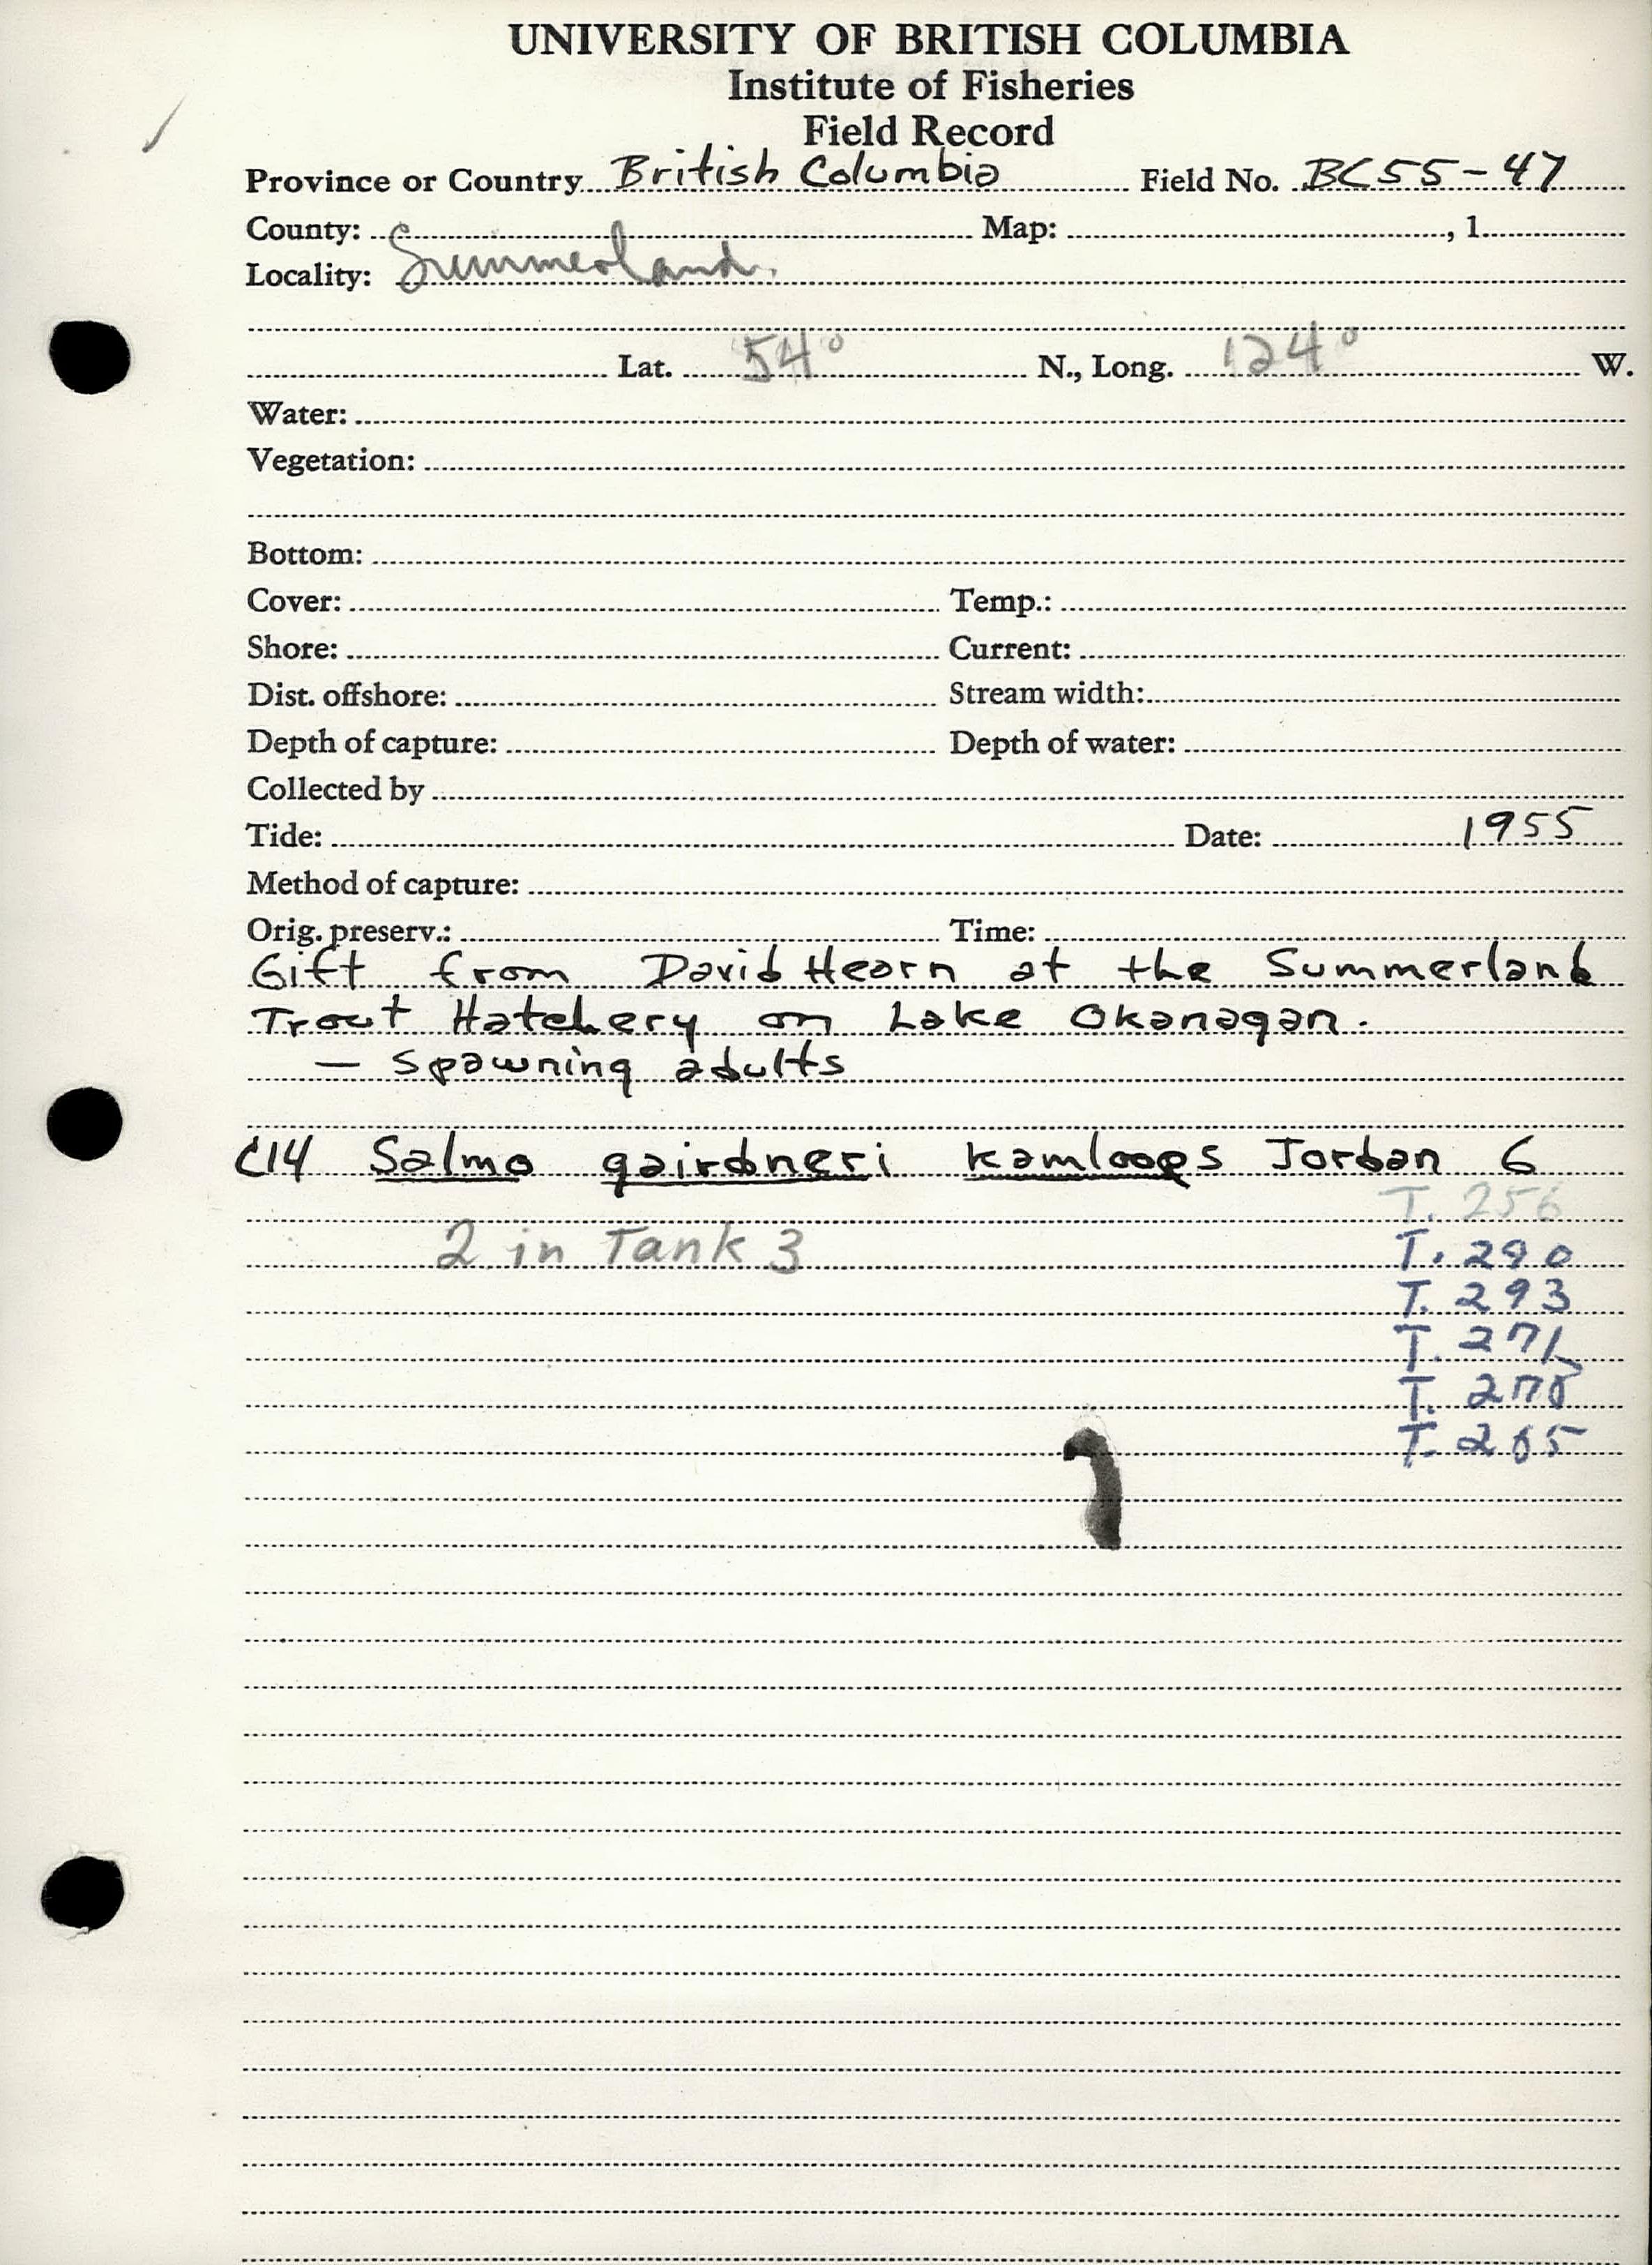 UNIVERSITY OF BRITISH COLUMBIA
Institute of Fisheries
Field Record
Province or Country British Columbia Field No. BC55-47
County: Map: , 1
Locality: Summerland.
Lat. 54° N., Long. 124° W.
Water:
Vegetation:
Bottom:
Cover: Temp.:
Shore: Current:
Dist. offshore: Stream width:
Depth of capture: Depth of water:
Collected by
Tide: Date: 1955
Method of capture:
Orig. preserv.: Time:
Gift from David Hearn at the Summerland
Trout Hatchery on Lake Okanagan.
— Spawning adults
C14 Salmo gairdneri kamloops Jordan 6
T. 256
2 in Tank 3 T. 290
T. 293
T. 271
T. 278
T. 265